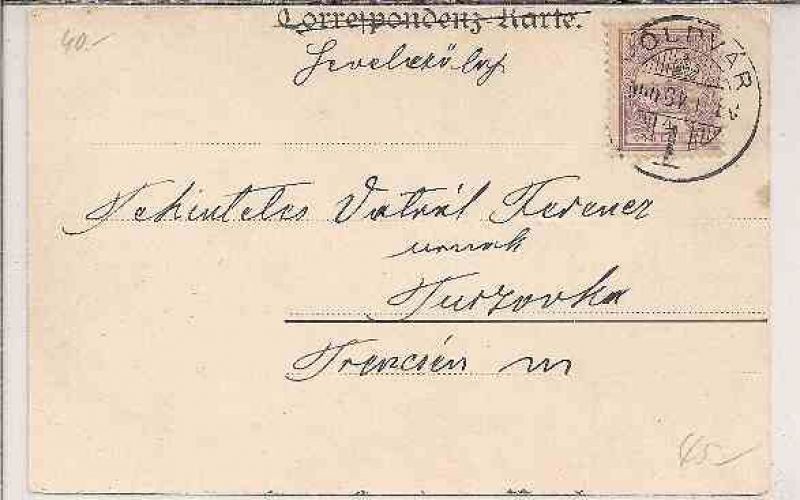 40.-
Correspondenz-Karte.
Levelezőlap
ÖLDVÁR
Tekintetes Vatrál Ferencz
urnak
Turzovka
Trencsén m
45-